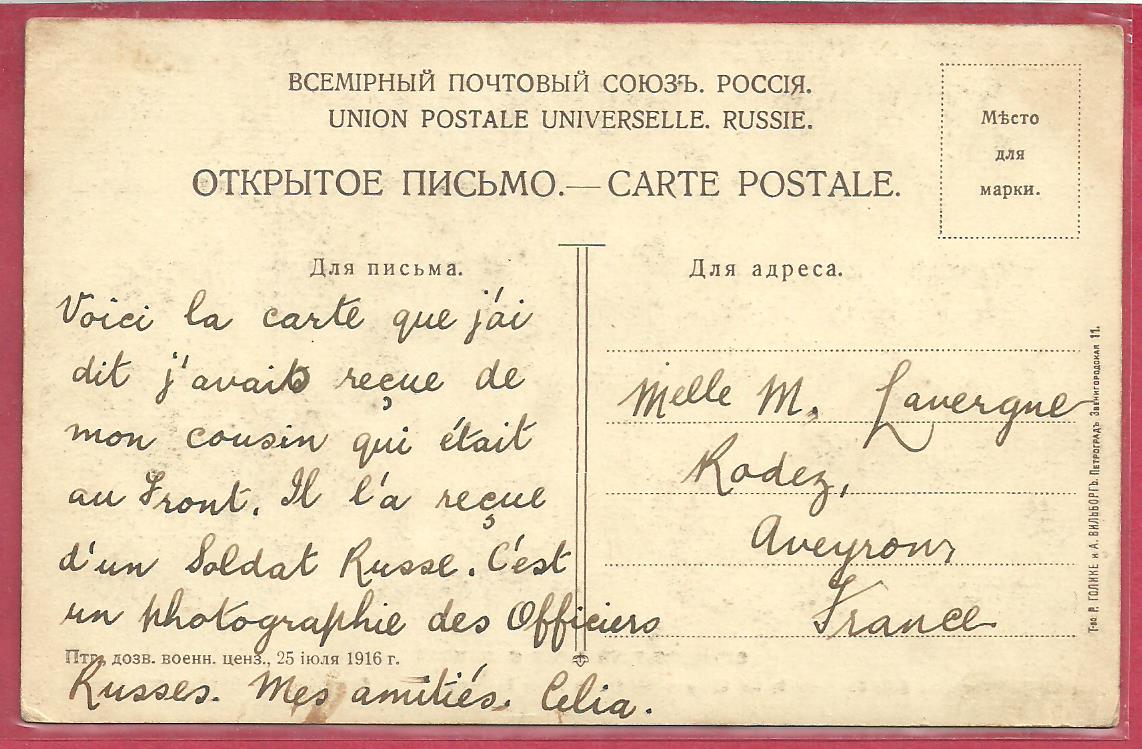 ВСЕМІРНЫЙ ПОЧТОВЫЙ СОЮЗЪ. РОССІЯ.
UNION POSTALE UNIVERSELLE. RUSSIE.
ОТКРЫТОЕ ПИСЬМО.—CARTE POSTALE.
Мѣсто
для
марки.
Для письма.
Voici la carte que j'ai
dit j'avais reçue de
mon cousin qui était
au Front. Il l'a reçue
d'un Soldat Russe. C'est
un photographie des Officiers
Птг. дозв. военн. ценз., 25 іюля 1916 г.
Russes. Mes amitiés. Celia.
Для адреса.
Melle M. Lavergne
Rodez,
Aveyron,
France
Т-во Р. ГОЛИКЕ и А. ВИЛЬБОРГЪ. ПЕТРОГРАДЪ. Звенигородская 11.